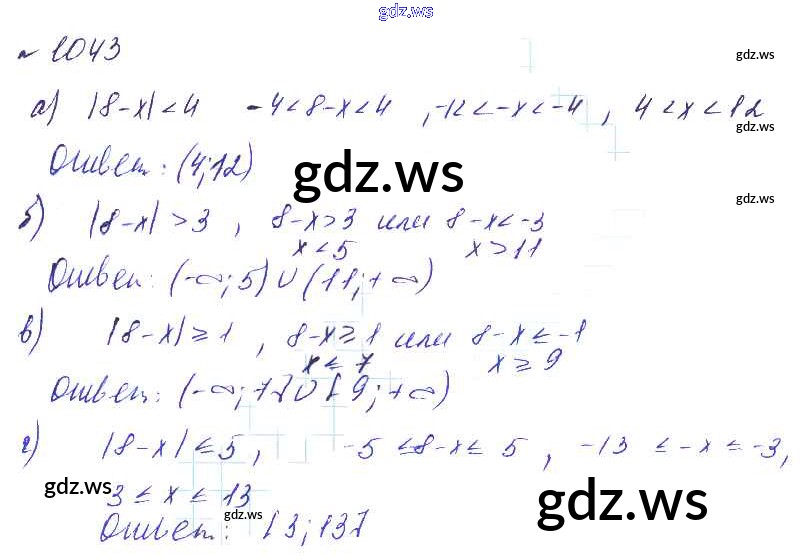 gdz.ws
№ 1043
gdz.ws
а) |8-x|<4 -4<8-x<4 , -12<-x<-4 , 4<x<12
gdz.ws
Ответ: (4;12)
gdz.ws
gdz.ws
б) |8-x|>3 , 8-x>3 или 8-x<-3
x<5 x>11
Ответ: (-∞;5)∪(11;+∞)
в) |8-x|≥1 , 8-x≥1 или 8-x≤-1
x≤7 x≥9
Ответ: (-∞;7]∪[9;+∞)
г) |8-x|≤5, -5≤8-x≤5 , -13≤-x≤-3,
gdz.ws
3≤x≤13
gdz.ws
gdz.ws
Ответ: [3;13]